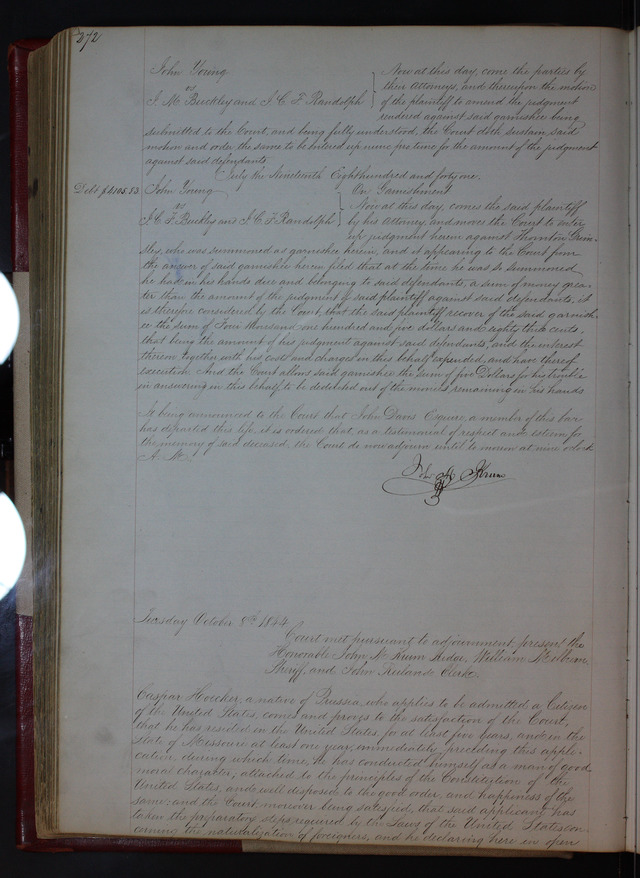 272
John Young
vs
J. M. Buckley and J. C. F. Randolph
Now at this day, come the parties by
their Attorneys, and thereupon the motion
of the plaintiff to amend the judgment
rendered against said garnishee being
submitted to the Court, and being fully understood, the Court doth sustain said
motion and order the same to be entered up nunc pro tunc for the amount of the judgment
against said defendants
July the Nineteenth Eighteen hundred and forty one.
Debt $4105.83
John Young
On Garnishment
vs
J. C. F. Buckley and J. C. F. Randolph
Now at this day, comes the said plaintiff
by his Attorney and moves the Court to enter
up judgment herein against Thornton Grim
sley, who was summoned as garnishee herein, and it appearing to the Court from
the answer of said garnishee herein filed that at the time he was so summoned
he had in his hands due and belonging to said defendants, a sum of money grea-
ter than the amount of the judgment of said plaintiff against said defendants, it
is therefore considered by the Court, that the said plaintiff recover of the said garnish-
ee the sum of Four thousand, one hundred and five dollars and eighty three cents,
that being the amount of his judgment against said defendants, and the interest
thereon together with his costs and charges in this behalf expended, and have thereof
execution. And the Court allows said garnishee the sum of five Dollars for his trouble
in answering in this behalf to be deducted out of the monies remaining in his hands
It being announced to the Court that John Davis Esquire, a member of this bar
has departed this life, it is ordered that, as a testimonial of respect and esteem for
the memory of said deceased, the Court do now adjourn until to morrow at nine o'clock
A. M.
John M. Krum
Tuesday October 8th 1844
Court met pursuant to adjournment, present the
Honorable John M. Krum Judge, William Milburn
Sheriff, and John Ruland Clerk.
Caspar Hoecker, a native of Prussia, who applies to be admitted a Citizen
of the United States, comes and proves to the satisfaction of the Court,
that he has resided in the United States, for at least five years, and in the
state of Missouri at least one year, immediately preceding this appli-
cation, during which time, he has conducted himself as a man of good
moral character, attached to the principles of the Constitution of the
United States, and well disposed to the good order, and happiness of the
same: and the Court moreover being satisfied, that said applicant has
taken the preparatory steps required by the Laws of the United States con-
cerning the naturalization of foreigners, and he declaring here in open